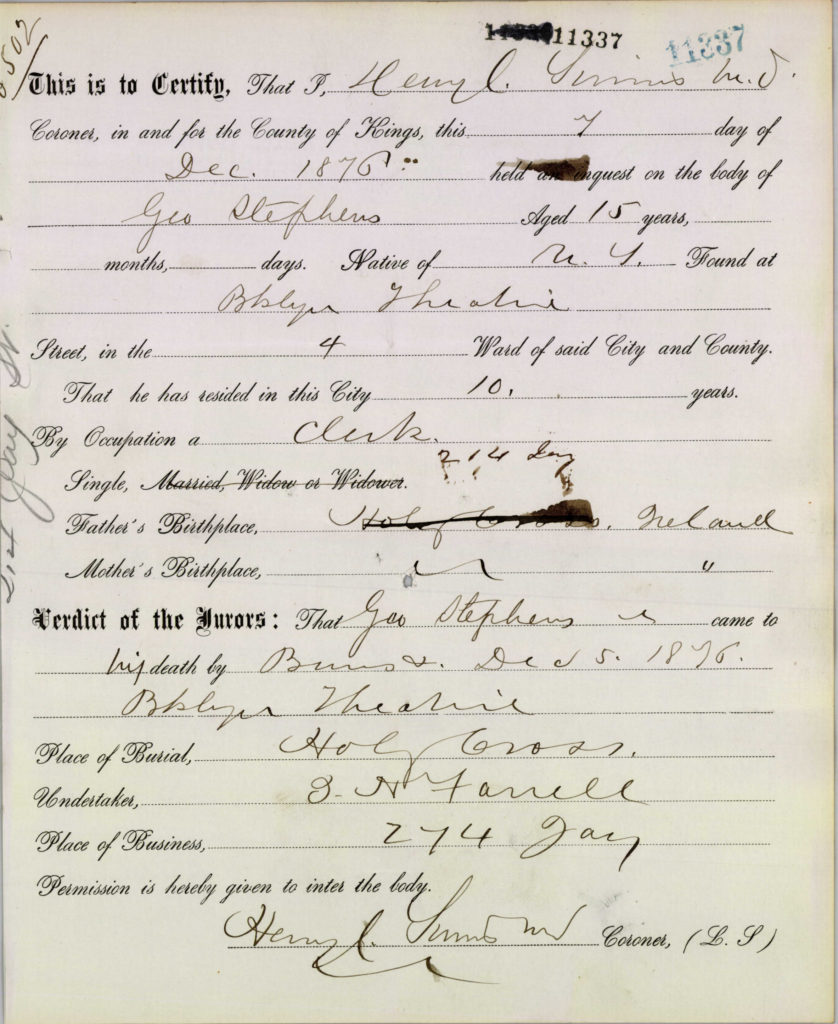 11337 11337
This is to Certify, That I, Henry C. Simms M.D.
Coroner, in and for the County of Kings, this 7 day of
Dec. 1876 held an inquest on the body of
Geo Stephens Aged 15 years,
months, days. Native of N. Y. Found at
Bklyn Theatre
Street, in the 4 Ward of said City and County.
That he has resided in this City 10. years.
By Occupation a Clerk.
214 Jay
Single, Married, Widow or Widower.
Father's Birthplace, Holy Cross. Ireland
Mother's Birthplace, "
Verdict of the Jurors: That Geo Stephens came to
his death by Burns. Dec 5. 1876.
Bklyn Theatre
Place of Burial, Holy Cross.
Undertaker, J. H Farrell
Place of Business, 274 Jay
Permission is hereby given to inter the body.
Henry C. Simms MD Coroner, (L. S)
Jay St.